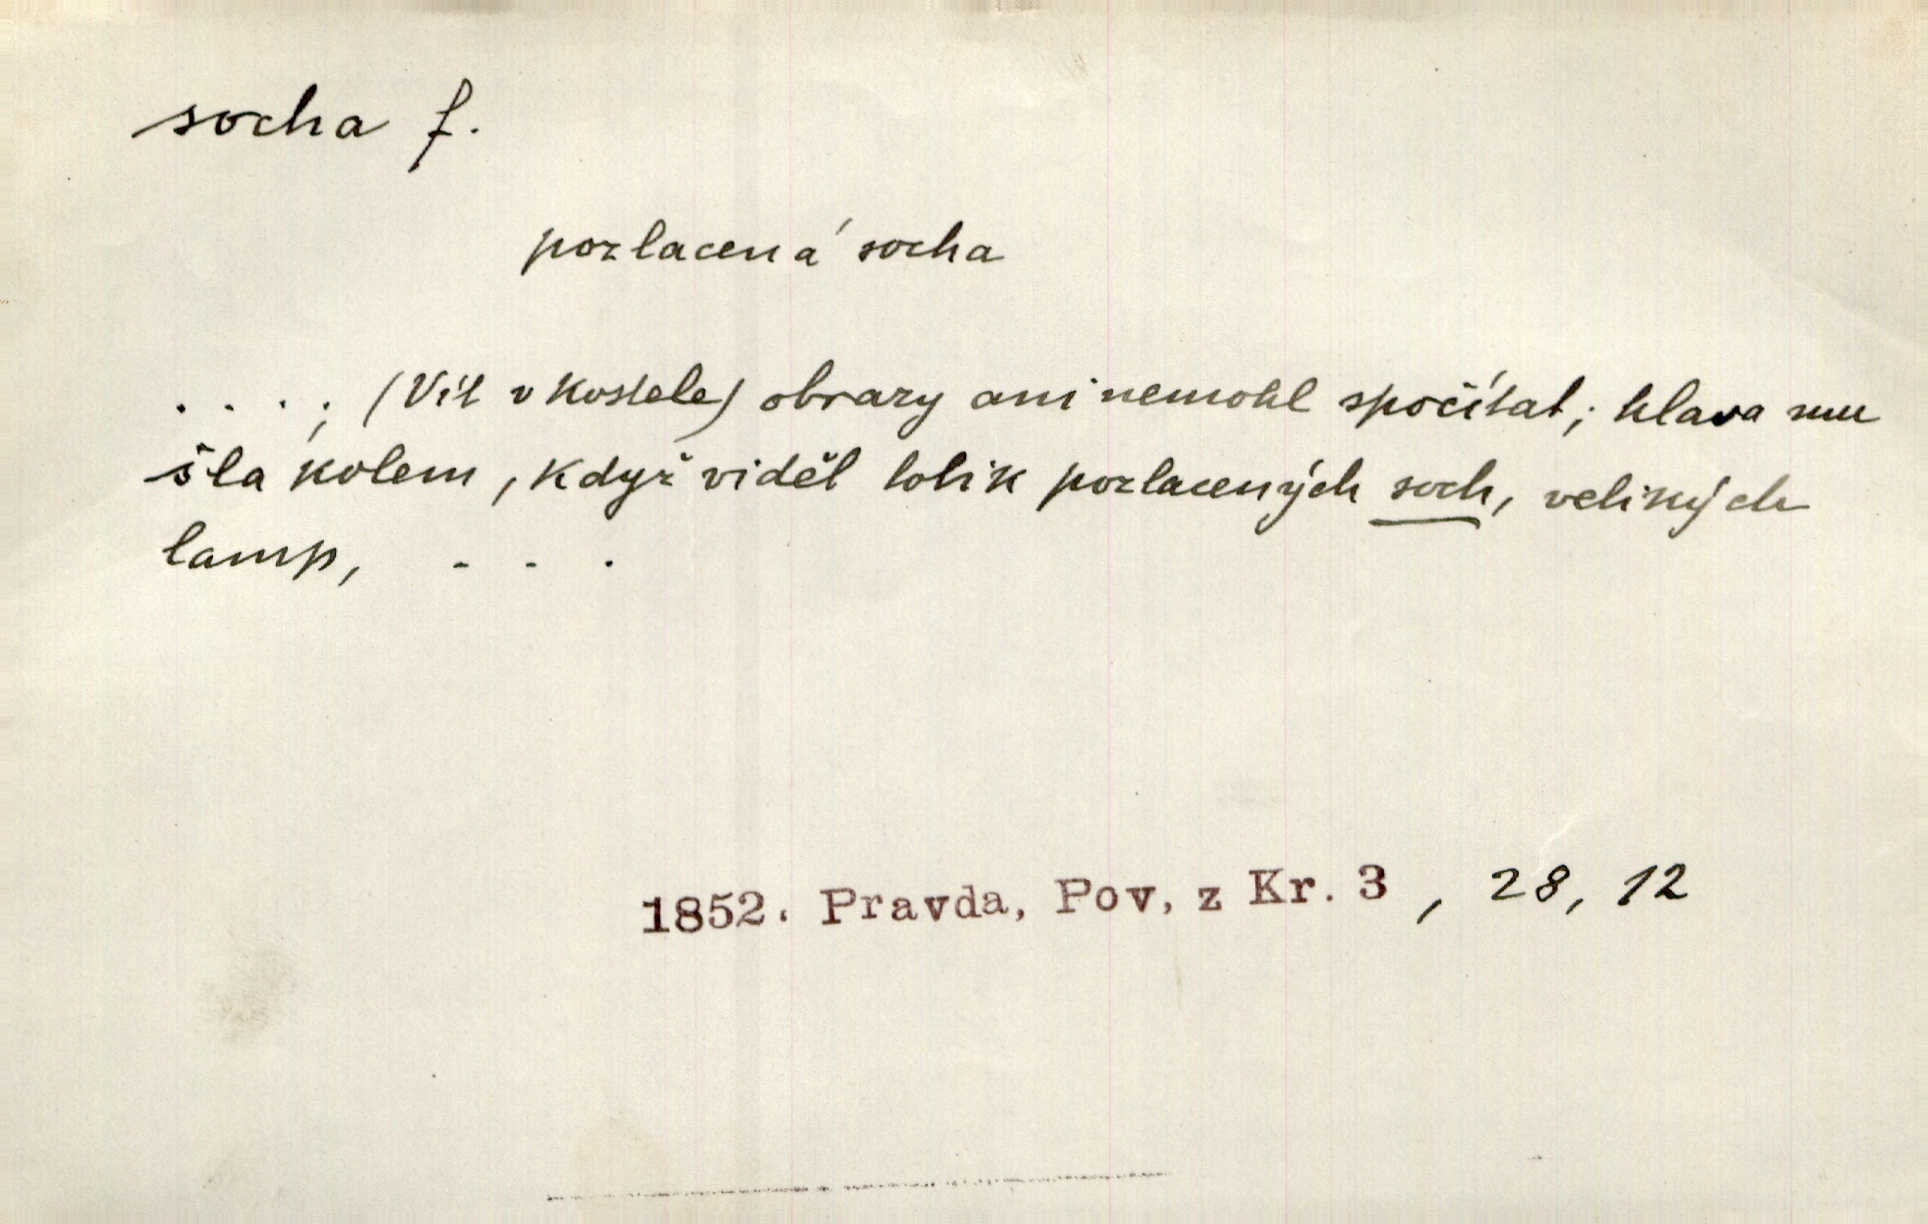 socha f.
pozlacená socha
. . . . ; (Vít v kostele) obrazy ani nemohl spočítat; hlava mu
šla kolem, když viděl tolik pozlacených soch, velikých
lamp, . . .
1852. Pravda, Pov, z Kr. 3 , 28, 12